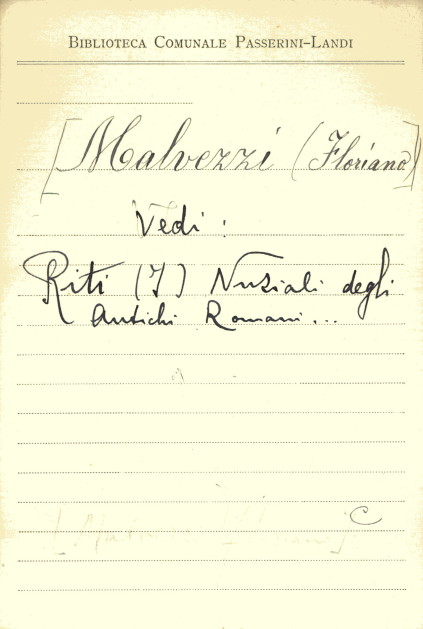 BIBLIOTECA COMUNALE PASSERINI-LANDI
[Malvezzi (Floriano)]
Vedi:
Riti (I) Nuziali degli
Antichi Romani...
C